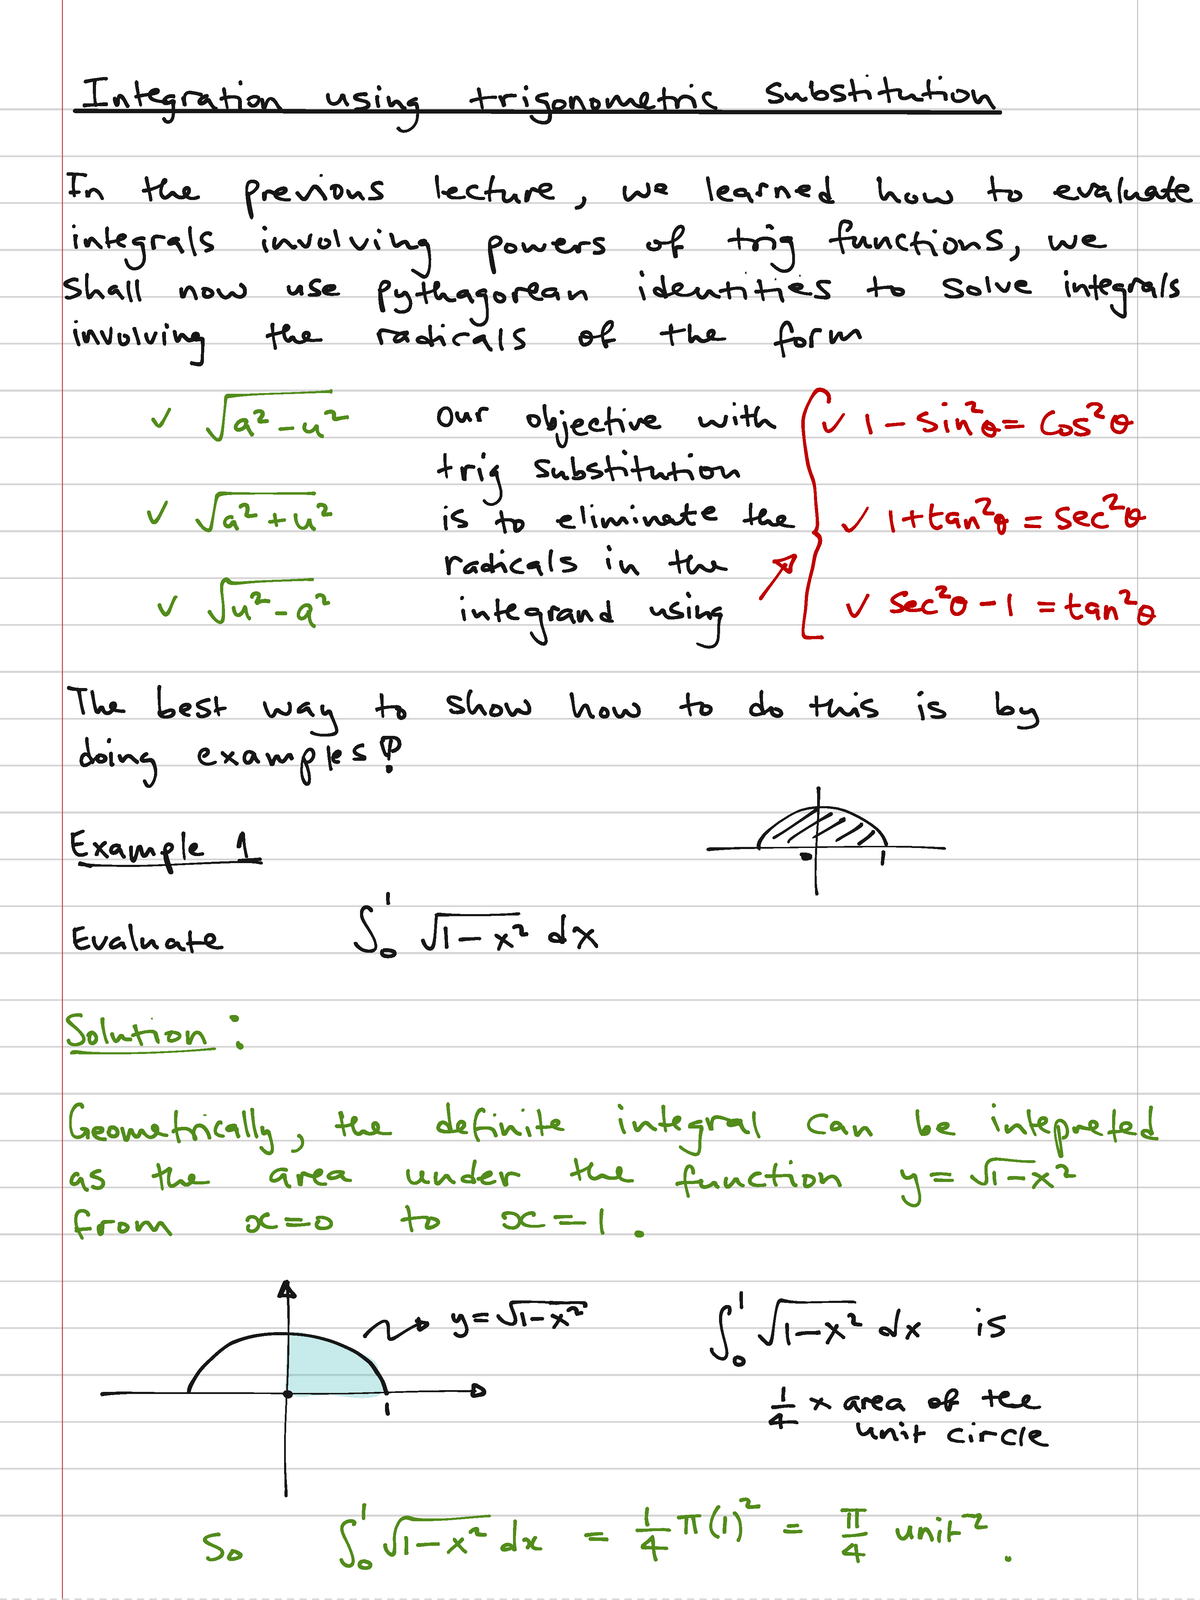 Integration using trigonometric substitution
In the previous lecture, we learned how to evaluate
integrals involving powers of trig functions, we
shall now use pythagorean identities to solve integrals
involving the radicals of the form
✓ √(a²-u²) our objective with ✓ 1-sin²θ = cos²θ
trig substitution
✓ √(a²+u²) is to eliminate the ✓ 1+tan²θ = sec²θ
radicals in the
✓ √(u²-a²) integrand using ✓ sec²θ-1 = tan²θ
The best way to show how to do this is by
doing examples!
Example 1
0 1
Evaluate ∫₀¹ √(1-x²) dx
Solution :
Geometrically, the definite integral can be intepreted
as the area under the function y = √(1-x²)
from x=0 to x=1.
y=√(1-x²) ∫₀¹ √(1-x²) dx is
1
1/4 × area of the
unit circle
So ∫₀¹ √(1-x²) dx = 1/4 π(1)² = π/4 unit².